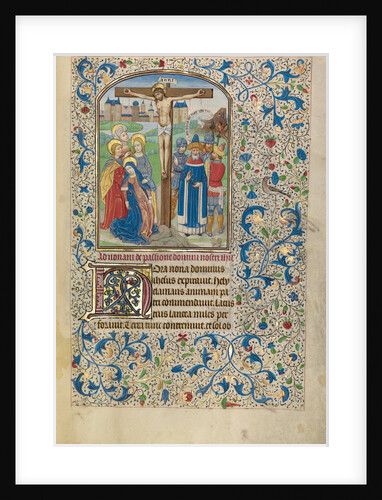 INRI
Ad nonam de passione domini nostri ihu
Hora nona dominus
ihesus expiravit. hely
clamans animam pa
tri commendavit. Latus
eius lancea miles per
foravit. Terra tunc contremuit. et sol ob